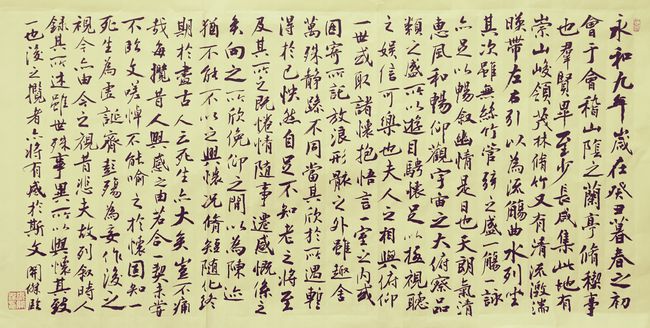 永和九年歲在癸丑暮春之初
會于會稽山陰之蘭亭脩稧事
也羣賢畢至少長咸集此地有
崇山峻領茂林脩竹又有清流激湍
暎帶左右引以為流觴曲水列坐
其次雖無絲竹管弦之盛一觴一詠
亦足以暢叙幽情是日也天朗氣清
惠風和暢仰觀宇宙之大俯察品
類之盛所以遊目騁懷足以極視聽
之娛信可樂也夫人之相與俯仰
一世或取諸懷抱悟言一室之內或
因寄所託放浪形骸之外雖趣舍
萬殊静躁不同當其欣於所遇蹔
得於己怏然自足不知老之將至
及其所之既惓情隨事遷感慨係之
矣向之所欣俛仰之間以為陳迹
猶不能不以之興懷況脩短隨化終
期於盡古人云死生亦大矣豈不痛
哉每攬昔人興感之由若合一契未嘗
不臨文嗟悼不能喻之於懷固知一
死生為虛誕齊彭殤為妄作後之
視今亦由今之視昔悲夫故列叙時人
錄其所述雖世殊事異所以興懷其致
一也後之攬者亦將有感於斯文